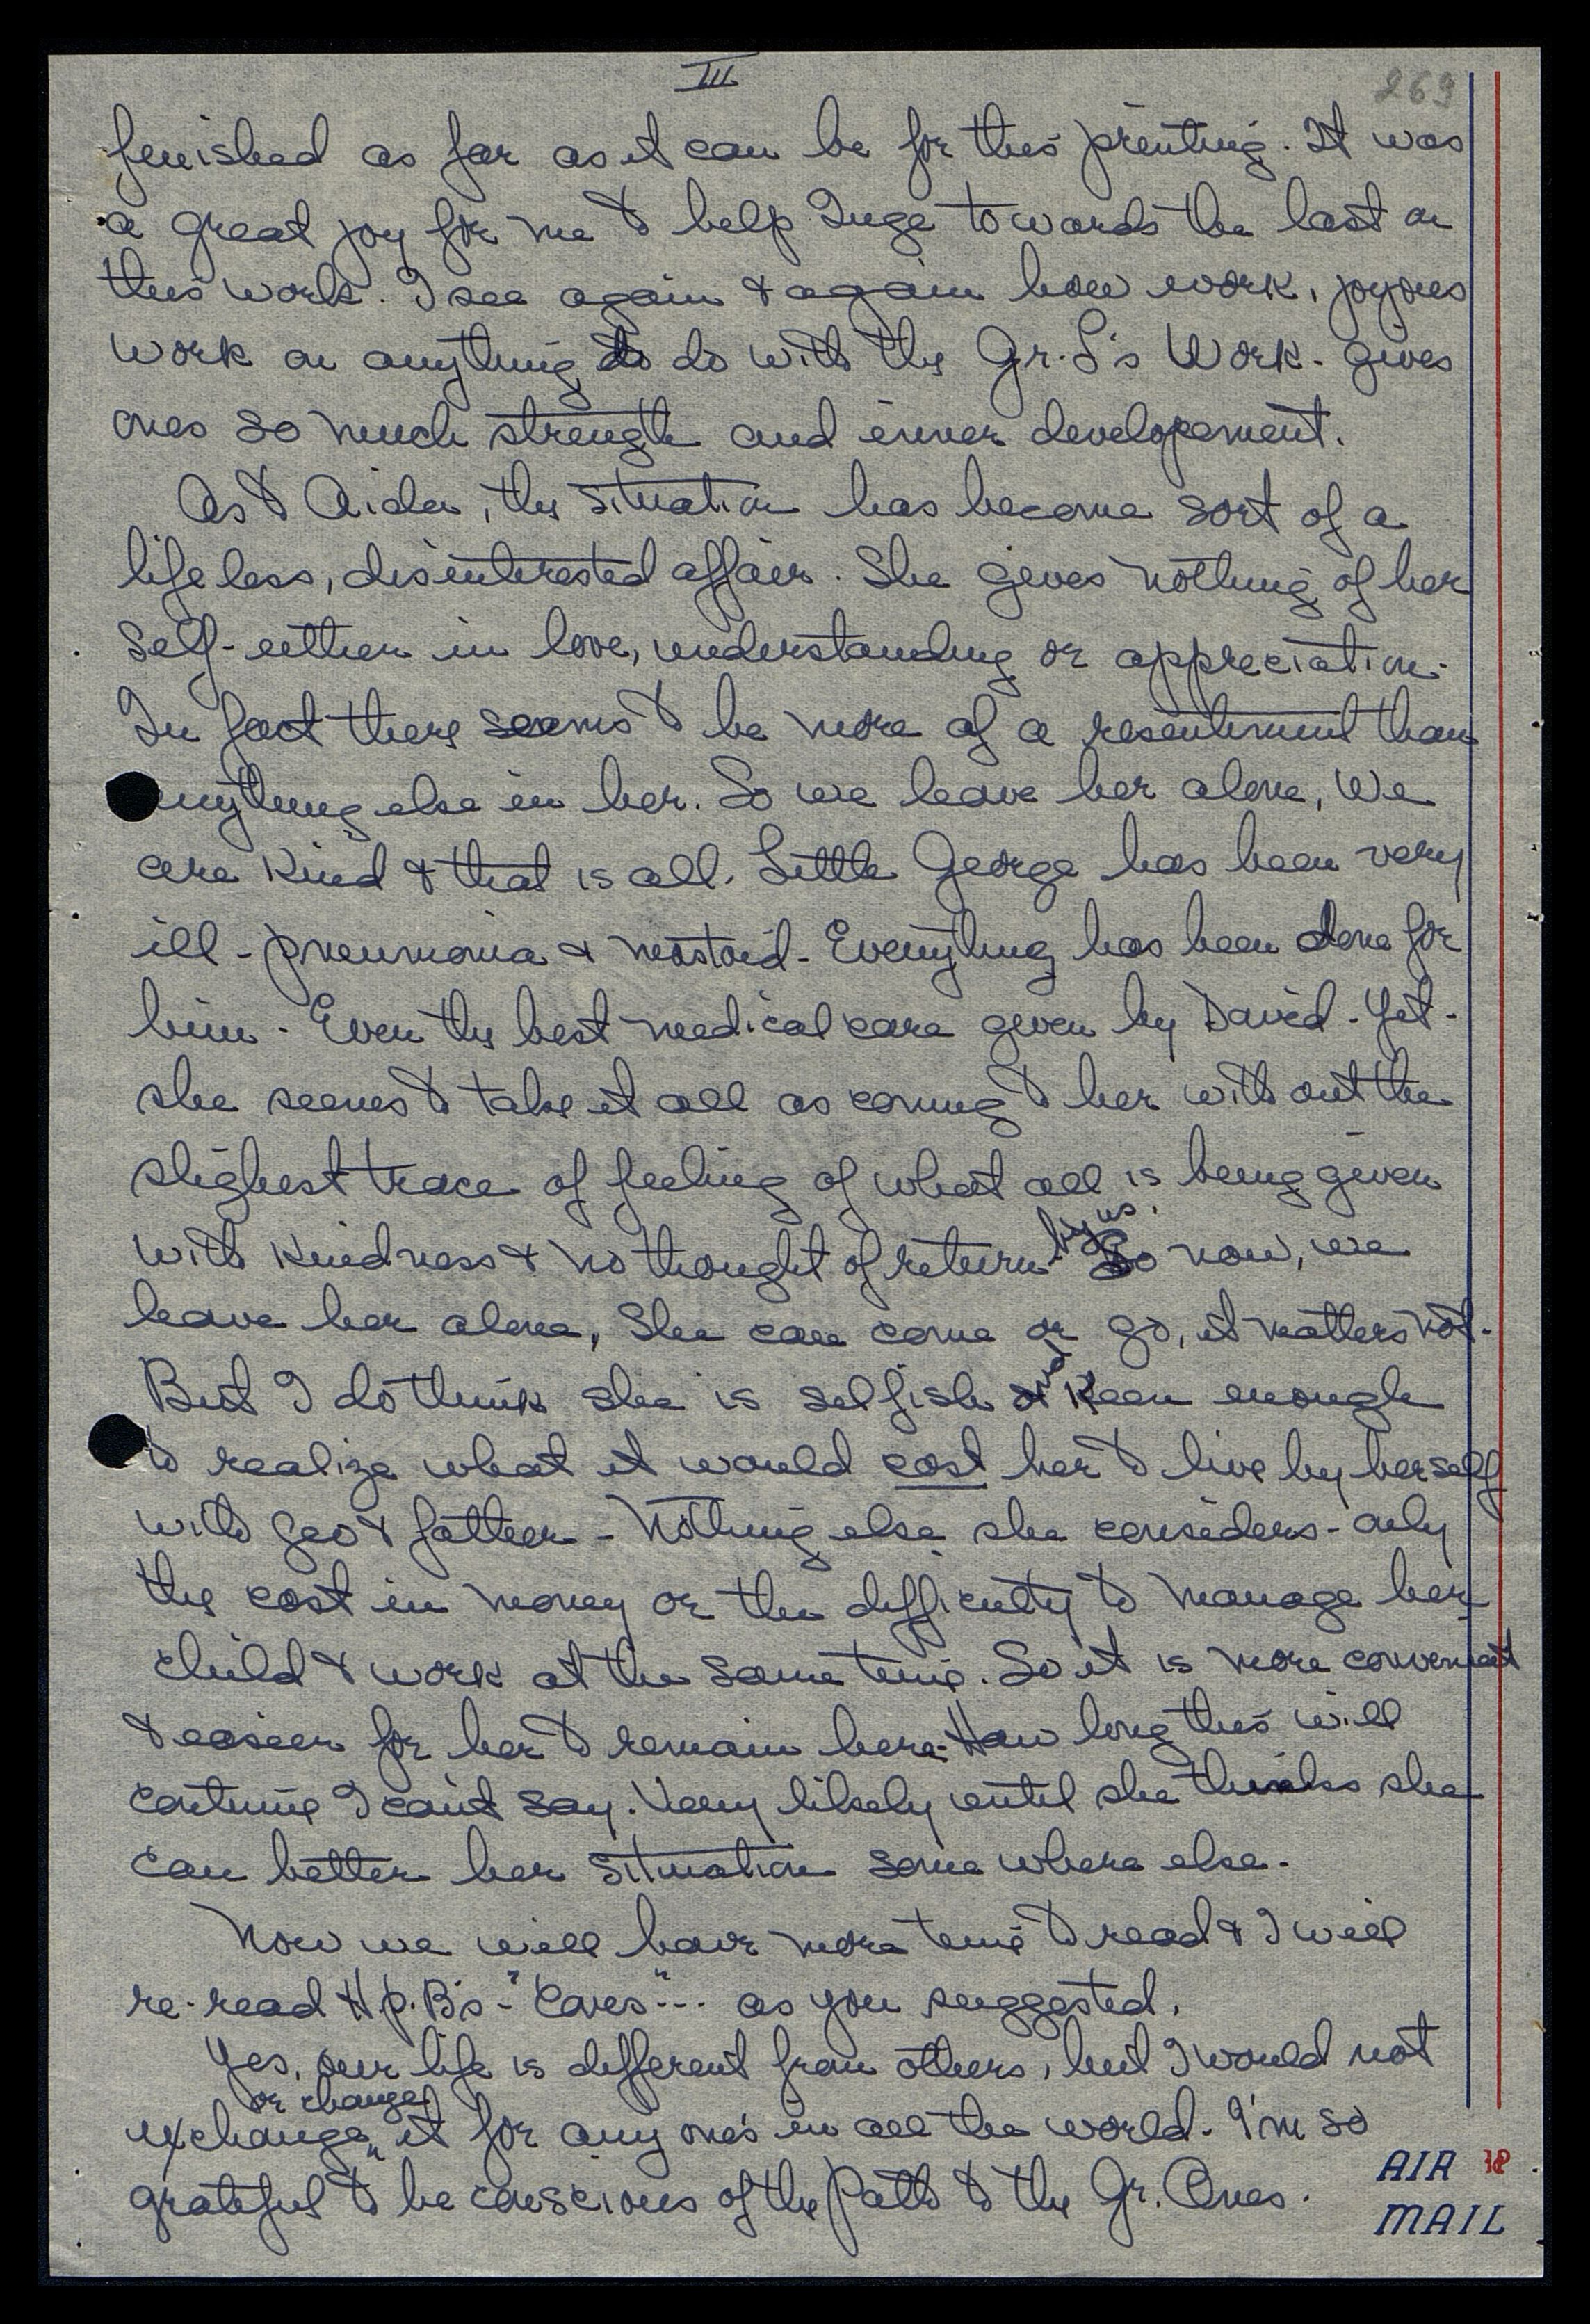 III
269
finished as far as it can be for this printing. It was
a great joy for me to help Inge towards the last on
this work. I see again & again how work, joyous
work on anything to do with the Gr. L's Work - gives
ones so much strength and inner developement.
As to Aida, the situation has become sort of a
lifeless, disinterested affair. She gives nothing of her
self - either in love, understanding or appreciation.
In fact there seems to be more of a resentment than
anything else in her. So we leave her alone, We
are kind & that is all. Little George has been very
ill - pneumonia & mastoid - Everything has been done for
him - Even the best medical care given by David. Yet -
she seems to take it all as coming to her without the
slighest trace of feeling of what all is being given
by us.
with kindness & no thought of return. So now, we
leave her alone, She can come or go, it matters not.
But I do think she is selfish and keen enough
to realize what it would cost her to live by herself
with Geo & father - Nothing else she considers - only
the cost in money or the difficulty to manage her
child & work at the same time. So it is more convenient
& easier for her to remain here. How long this will
continue I can't say. Very likely until she thinks she
can better her situation some where else.
Now we will have more time to read & I will
re-read H.P.B's - "Caves" ... as you suggested.
Yes, our life is different from others, but I would not
or change
exchange it for any one's in all the world. I'm so
grateful to be conscious of the Path to the Gr. Ones.
AIR
MAIL